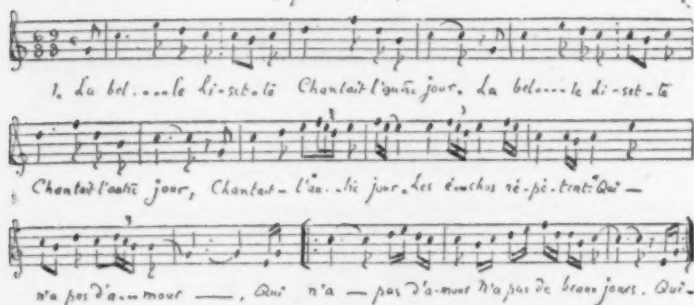 1. La bel....le Li-set-te Chantait l'autre jour. La bel....le Li-set-te
Chantait l'autre jour, Chantait- l'au..tre jour. Les é-chos ré-pè-tent: "Qui —
n'a pas d'a..mour —, Qui n'a — pas d'a-mour N'a pas de beaux jours. Qui-